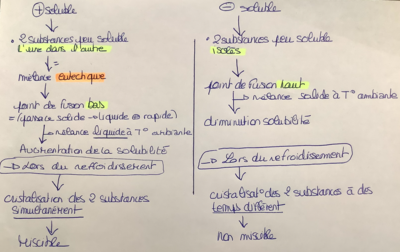 ⊕ soluble
• 2 substances peu soluble
l'une dans l'autre
=
mélange eutectique
point de fusion bas
=(passage solide → liquide ⊕ rapide)
↳ mélange liquide à T° ambiante
Augmentation de la solubilité
→ Lors du refroidissement
cristalisation des 2 substances
simultanément
Miscible
⊖ soluble
• 2 substances peu soluble
isolés
point de fusion haut
↳ mélance solide à T° ambiante
diminution solubilité
→ Lors du refroidissement
cristalisat° des 2 substances à des
temps différent
non miscible